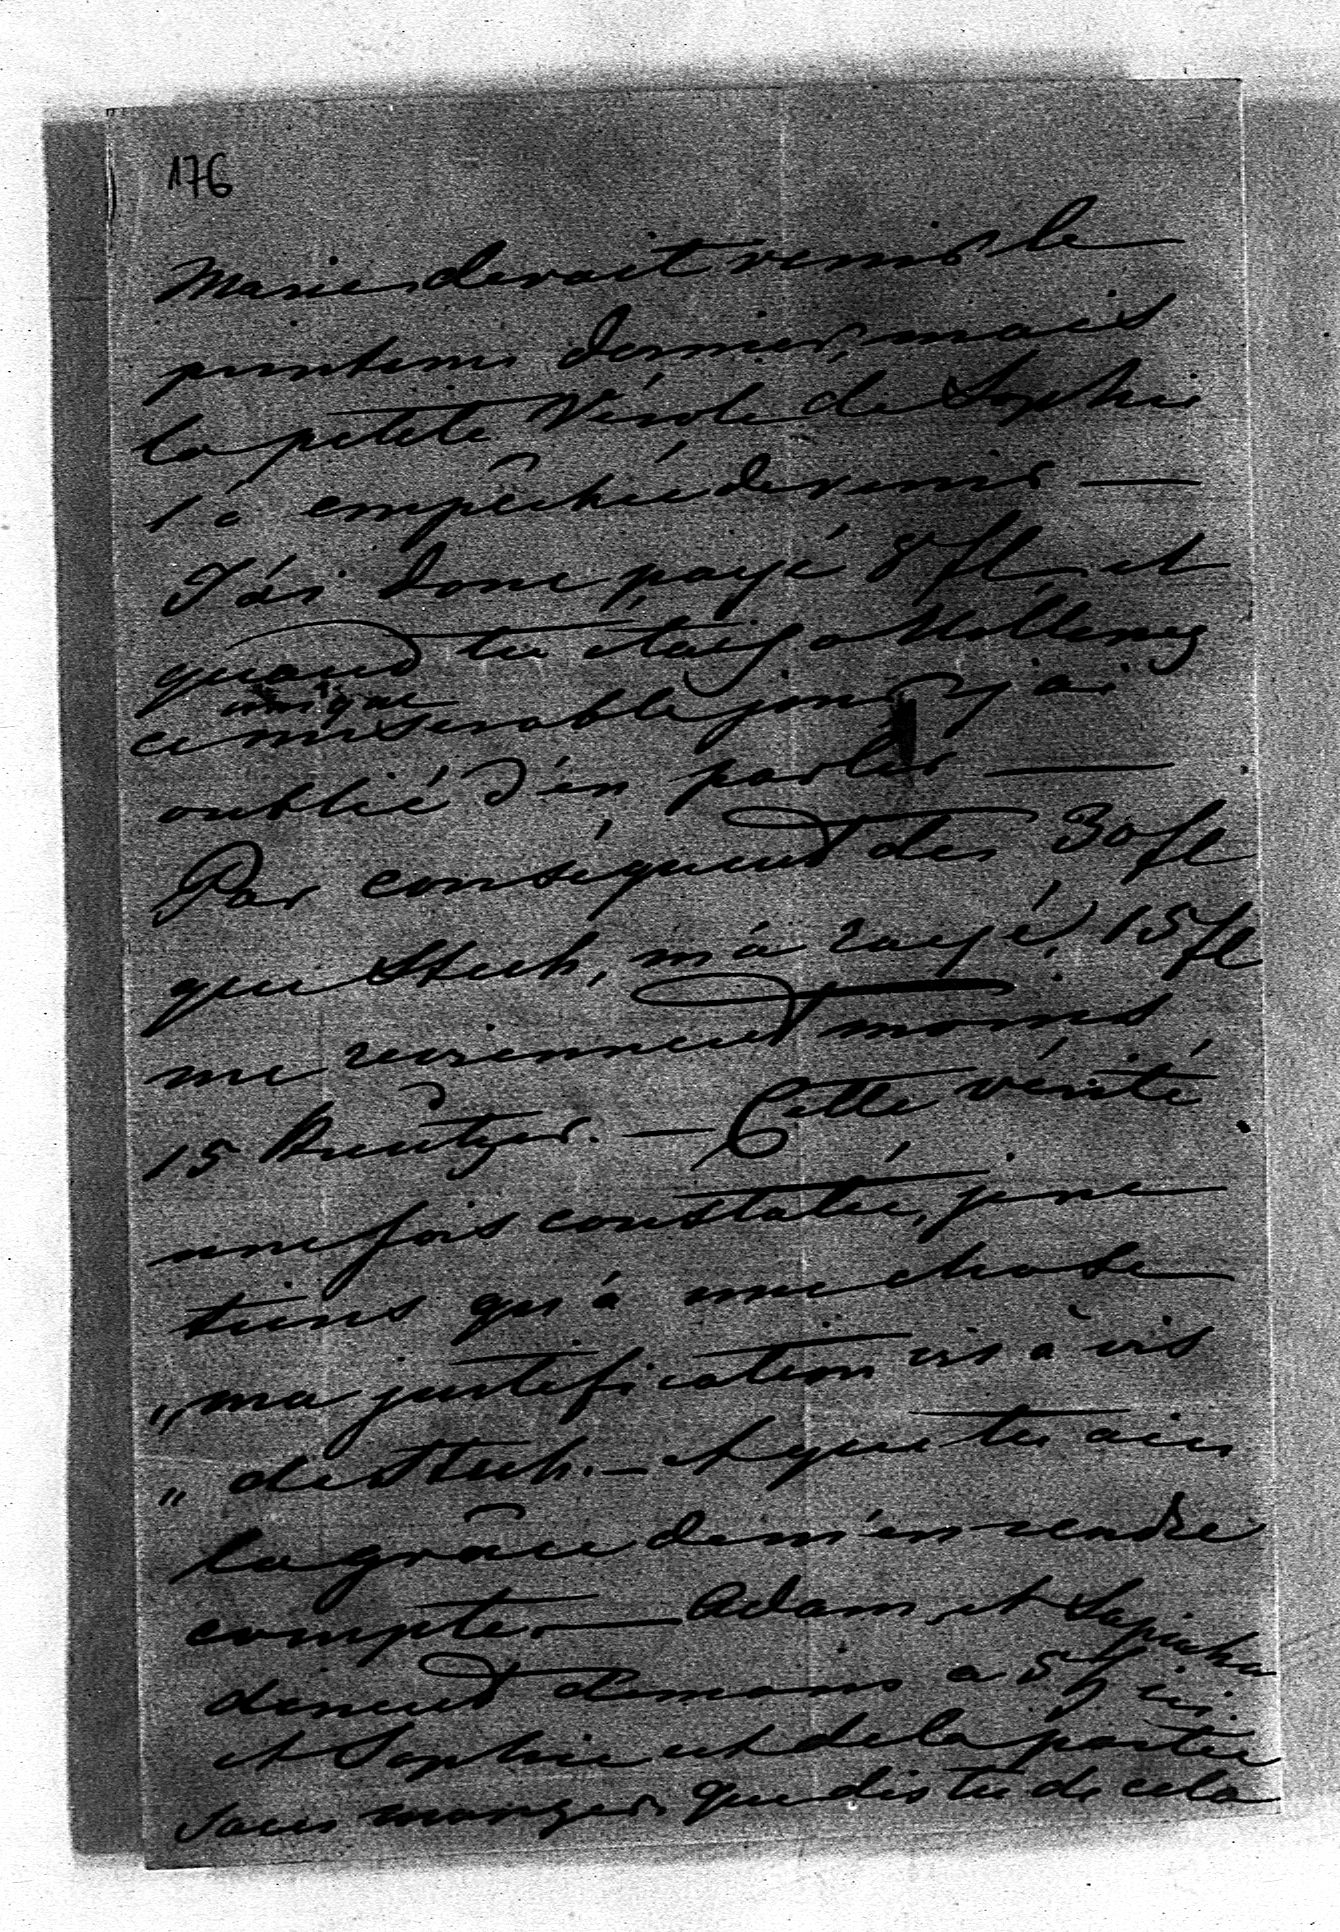 176
Marie devait venir le
printems dernier, mais
la petite Vérole de Sophie
l'a empêchée de venir —
J'ai donc payé 8 fl et
quand tu étais a
unique
ce miserable jour j'ai
oublié d'en parler —
Par conséquent des 30 fl
que Stuh, m'a payé, 15 fl
me reviennent moins
15 Kreutzer. — Cette vérité
une fois constatée, je ne
tiens qu'à une chose
„ ma justification vis à vis
„ de Stuh. — et que tu aies
la grâce de m'en rendre
compte. — Adam et Sapieha
dinent demain a 5 h ici.
et Sophie est de la partie
sans manger, que dis tu de cela